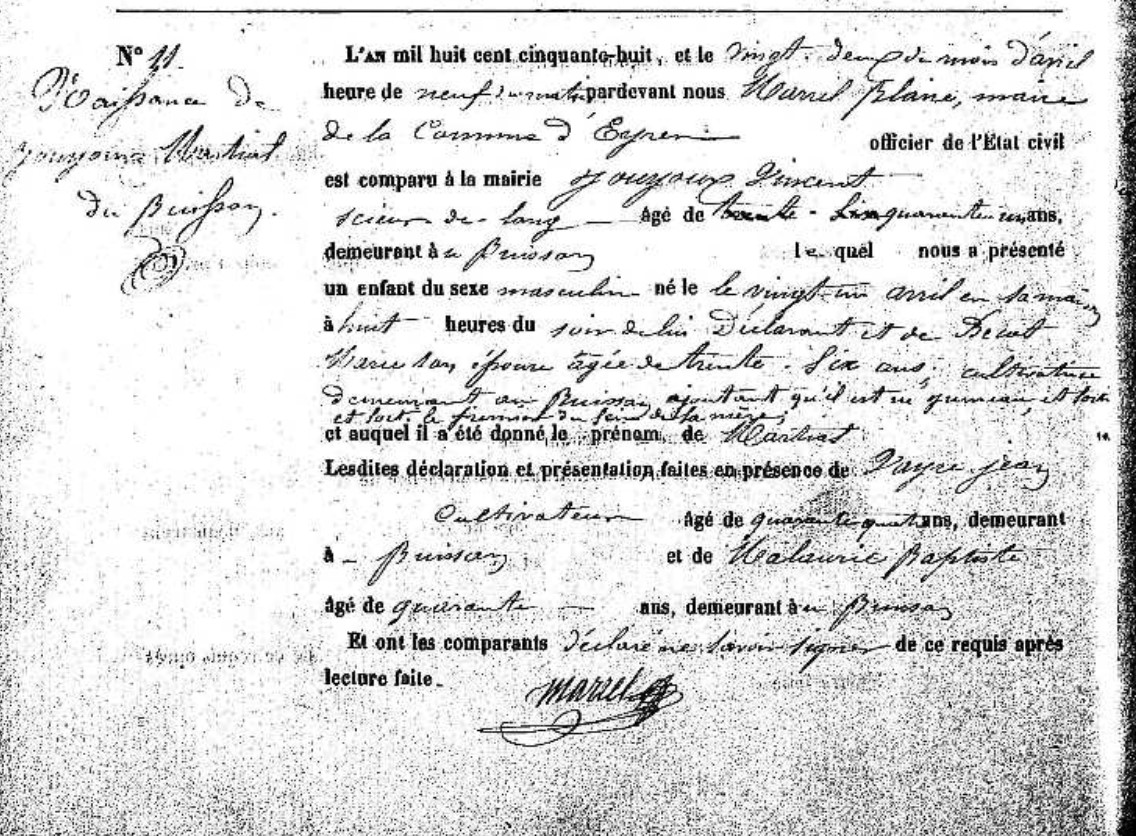 N° 11.
Naissance de
Jouyoux Martial
du Buisson.
L'AN mil huit cent cinquante-huit, et le vingt-deux du mois d'avril
heure de neuf du matin pardevant nous Marrel maire
de la Commune d'Eyren officier de l'Etat civil
est comparu à la mairie Jouyoux Vincent
scieur de long âgé de trente-six quarante un ans,
demeurant à Buisson lequel nous a présenté
un enfant du sexe masculin né le le vingt-un avril en sa maison
à huit heures du soir de lui Déclarant et de
Marie son épouse âgée de trente-six ans, cultivatrice
demeurant au Buisson ajoutant qu'il est né jumeau et
et sorti le premier du sein de sa mère,
et auquel il a été donné le prénom de Martial
Lesdites déclaration et présentation faites en présence de Vayre jean
Cultivateur âgé de quarante ans, demeurant
à Buisson et de Malaurie Baptiste
âgé de quarante ans, demeurant à Buisson
Et ont les comparants déclaré ne savoir signer de ce requis après
lecture faite.
Marrel